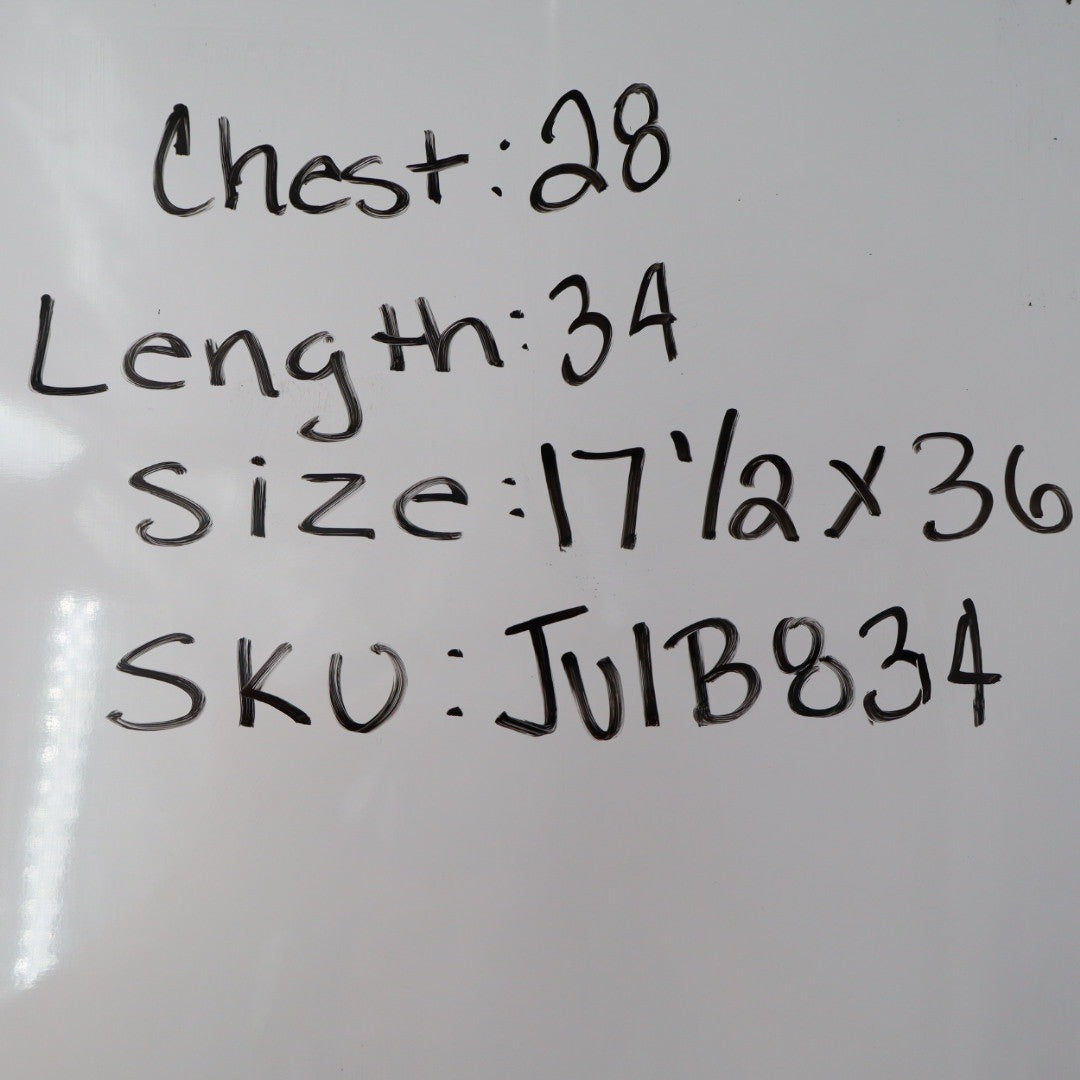 Chest: 28
Length: 34
Size: 17 1/2 x 36
SKU: JulB834